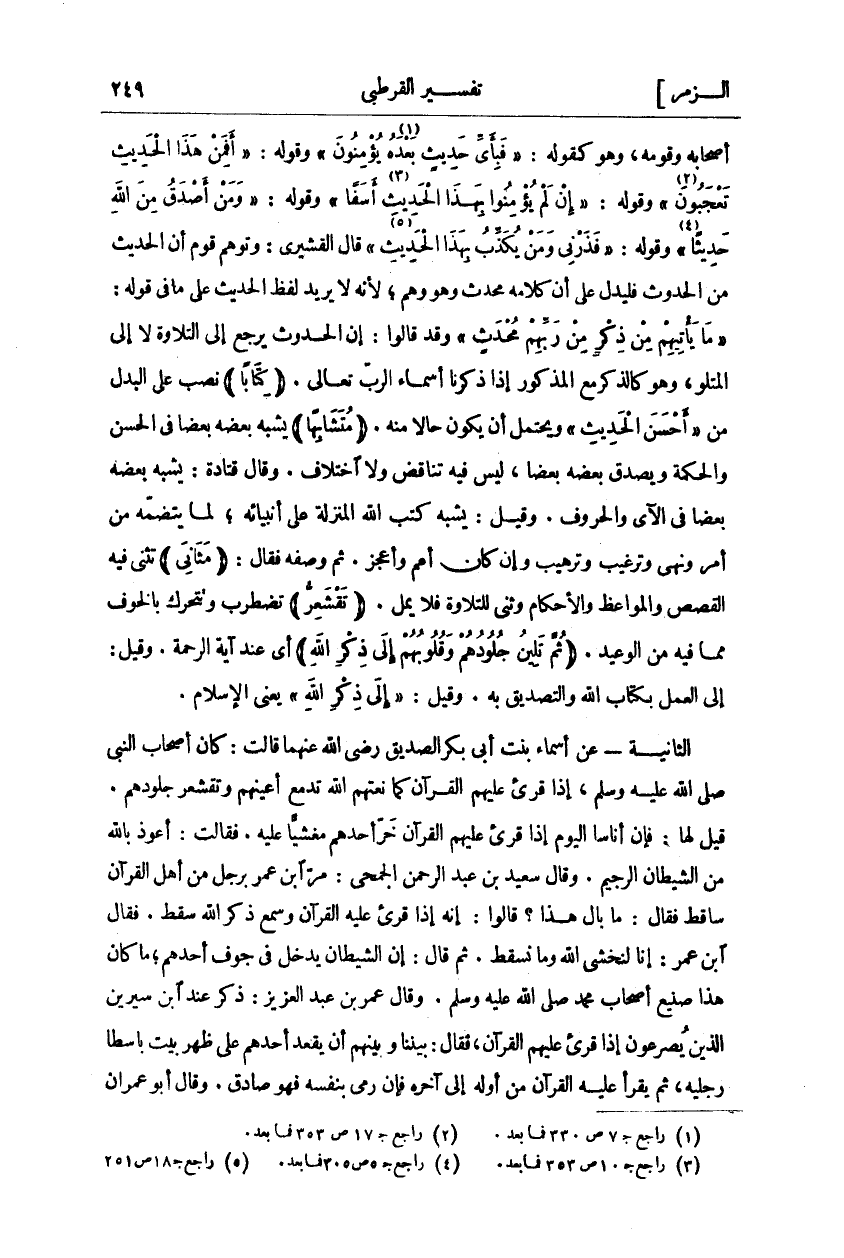 الـــزمر ] تفســير القرطبى ٢٤٩
أصحابه وقومه، وهو كقوله : « فَبِأَىِّ حَدِيثٍ بَعْدَهُ يُؤْمِنُونَ(١) » وقوله : « أَفَمِنْ هَذَا الْحَدِيثِ
تَعْجَبُونَ(٢) » وقوله : « إِنْ لَمْ يُؤْمِنُوا بِهَــذَا الْحَدِيثِ أَسَفًا(٣) » وقوله : « وَمَنْ أَصْدَقُ مِنَ اللهِ
حَدِيثًا(٤) » وقوله : « فَذَرْنِى وَمَنْ يُكَذِّبُ بِهَذَا الْحَدِيثِ(٥) » قال القشيرى : وتوهم قوم أن الحديث
من الحدوث فليدل على أن كلامه محدث وهو وهم ؛ لأنه لا يريد لفظ الحديث على ما فى قوله :
« مَا يَأْتِيهِمْ مِنْ ذِكْرٍ مِنْ رَبِّهِمْ مُحْدَثٍ » وقد قالوا : إن الحــدوث يرجع إلى التلاوة لا إلى
المتلو، وهو كالذكر مع المذكور إذا ذكرنا أسمــاء الربّ تعــالى . ﴿ كِتَابًا ﴾ نصب على البدل
من « أَحْسَنَ الْحَدِيثِ » ويحتمل أن يكون حالا منه . ﴿ مُتَشَابِهًا ﴾ يشبه بعضه بعضا فى الحسن
والحكمة ويصدق بعضه بعضا ، ليس فيه تناقض ولا آختلاف . وقال قتادة : يشبه بعضه
بعضا فى الآى والحروف . وقيــل : يشبه كتب الله المنزلة على أنبيائه ؛ لمــا يتضمّه من
أمر ونهى وترغيب وترهيب وإن كان أعم وأعجز . ثم وصفه فقال : ﴿ مَثَانِىَ ﴾ تثنى فيه
القصص والمواعظ والأحكام وثنى للتلاوة فلا يمل . ﴿ تَقْشَعِرُّ ﴾ تضطرب وتتحرك بالخوف
ممــا فيه من الوعيد . ﴿ ثُمَّ تَلِينُ جُلُودُهُمْ وَقُلُوبُهُمْ إِلَى ذِكْرِ اللهِ ﴾ أى عند آية الرحمة . وقيل :
إلى العمل بكتاب الله والتصديق به . وقيل : « إِلَى ذِكْرِ اللهِ » يعنى الإسلام .
الثانيــة — عن أسماء بنت أبى بكر الصديق رضى الله عنهما قالت : كان أصحاب النبى
صلى الله عليــه وسلم ، إذا قرئ عليهم القــرآن كما نعتهم الله تدمع أعينهم وتقشعر جلودهم .
قيل لها : فإن أناسا اليوم إذا قرئ عليهم القرآن خَرّ أحدهم مغشيًّا عليه . فقالت : أعوذ بالله
من الشيطان الرجيم . وقال سعيد بن عبد الرحمن الجمحى : مرّ آبن عمر برجل من أهل القرآن
ساقط فقال : ما بال هــذا ؟ قالوا : إنه إذا قرئ عليه القرآن وسمع ذكر الله سقط . فقال
آبن عمر : إنا لنخشى الله وما نسقط . ثم قال : إن الشيطان يدخل فى جوف أحدهم ؛ ما كان
هذا صنيع أصحاب محمد صلى الله عليه وسلم . وقال عمر بن عبد العزيز : ذكر عند آبن سيرين
الذين يُصرعون إذا قرئ عليهم القرآن، فقال : بيننا وبينهم أن يقعد أحدهم على ظهر بيت باسطا
رجليه، ثم يقرأ عليــه القرآن من أوله إلى آخره فإن رمى بنفسه فهو صادق . وقال أبو عمران
(١) راجع جـ ٧ ص ٣٣٠ فــا بعد . (٢) راجع جـ ١٧ ص ٣٥٣ فــا بعد .
(٣) راجع جـ ١٠ ص ٣٥٣ فــا بعد . (٤) راجع جـ ٥ ص ٣٠٥ فــا بعد . (٥) راجع جـ ١٨ ص ٢٥١